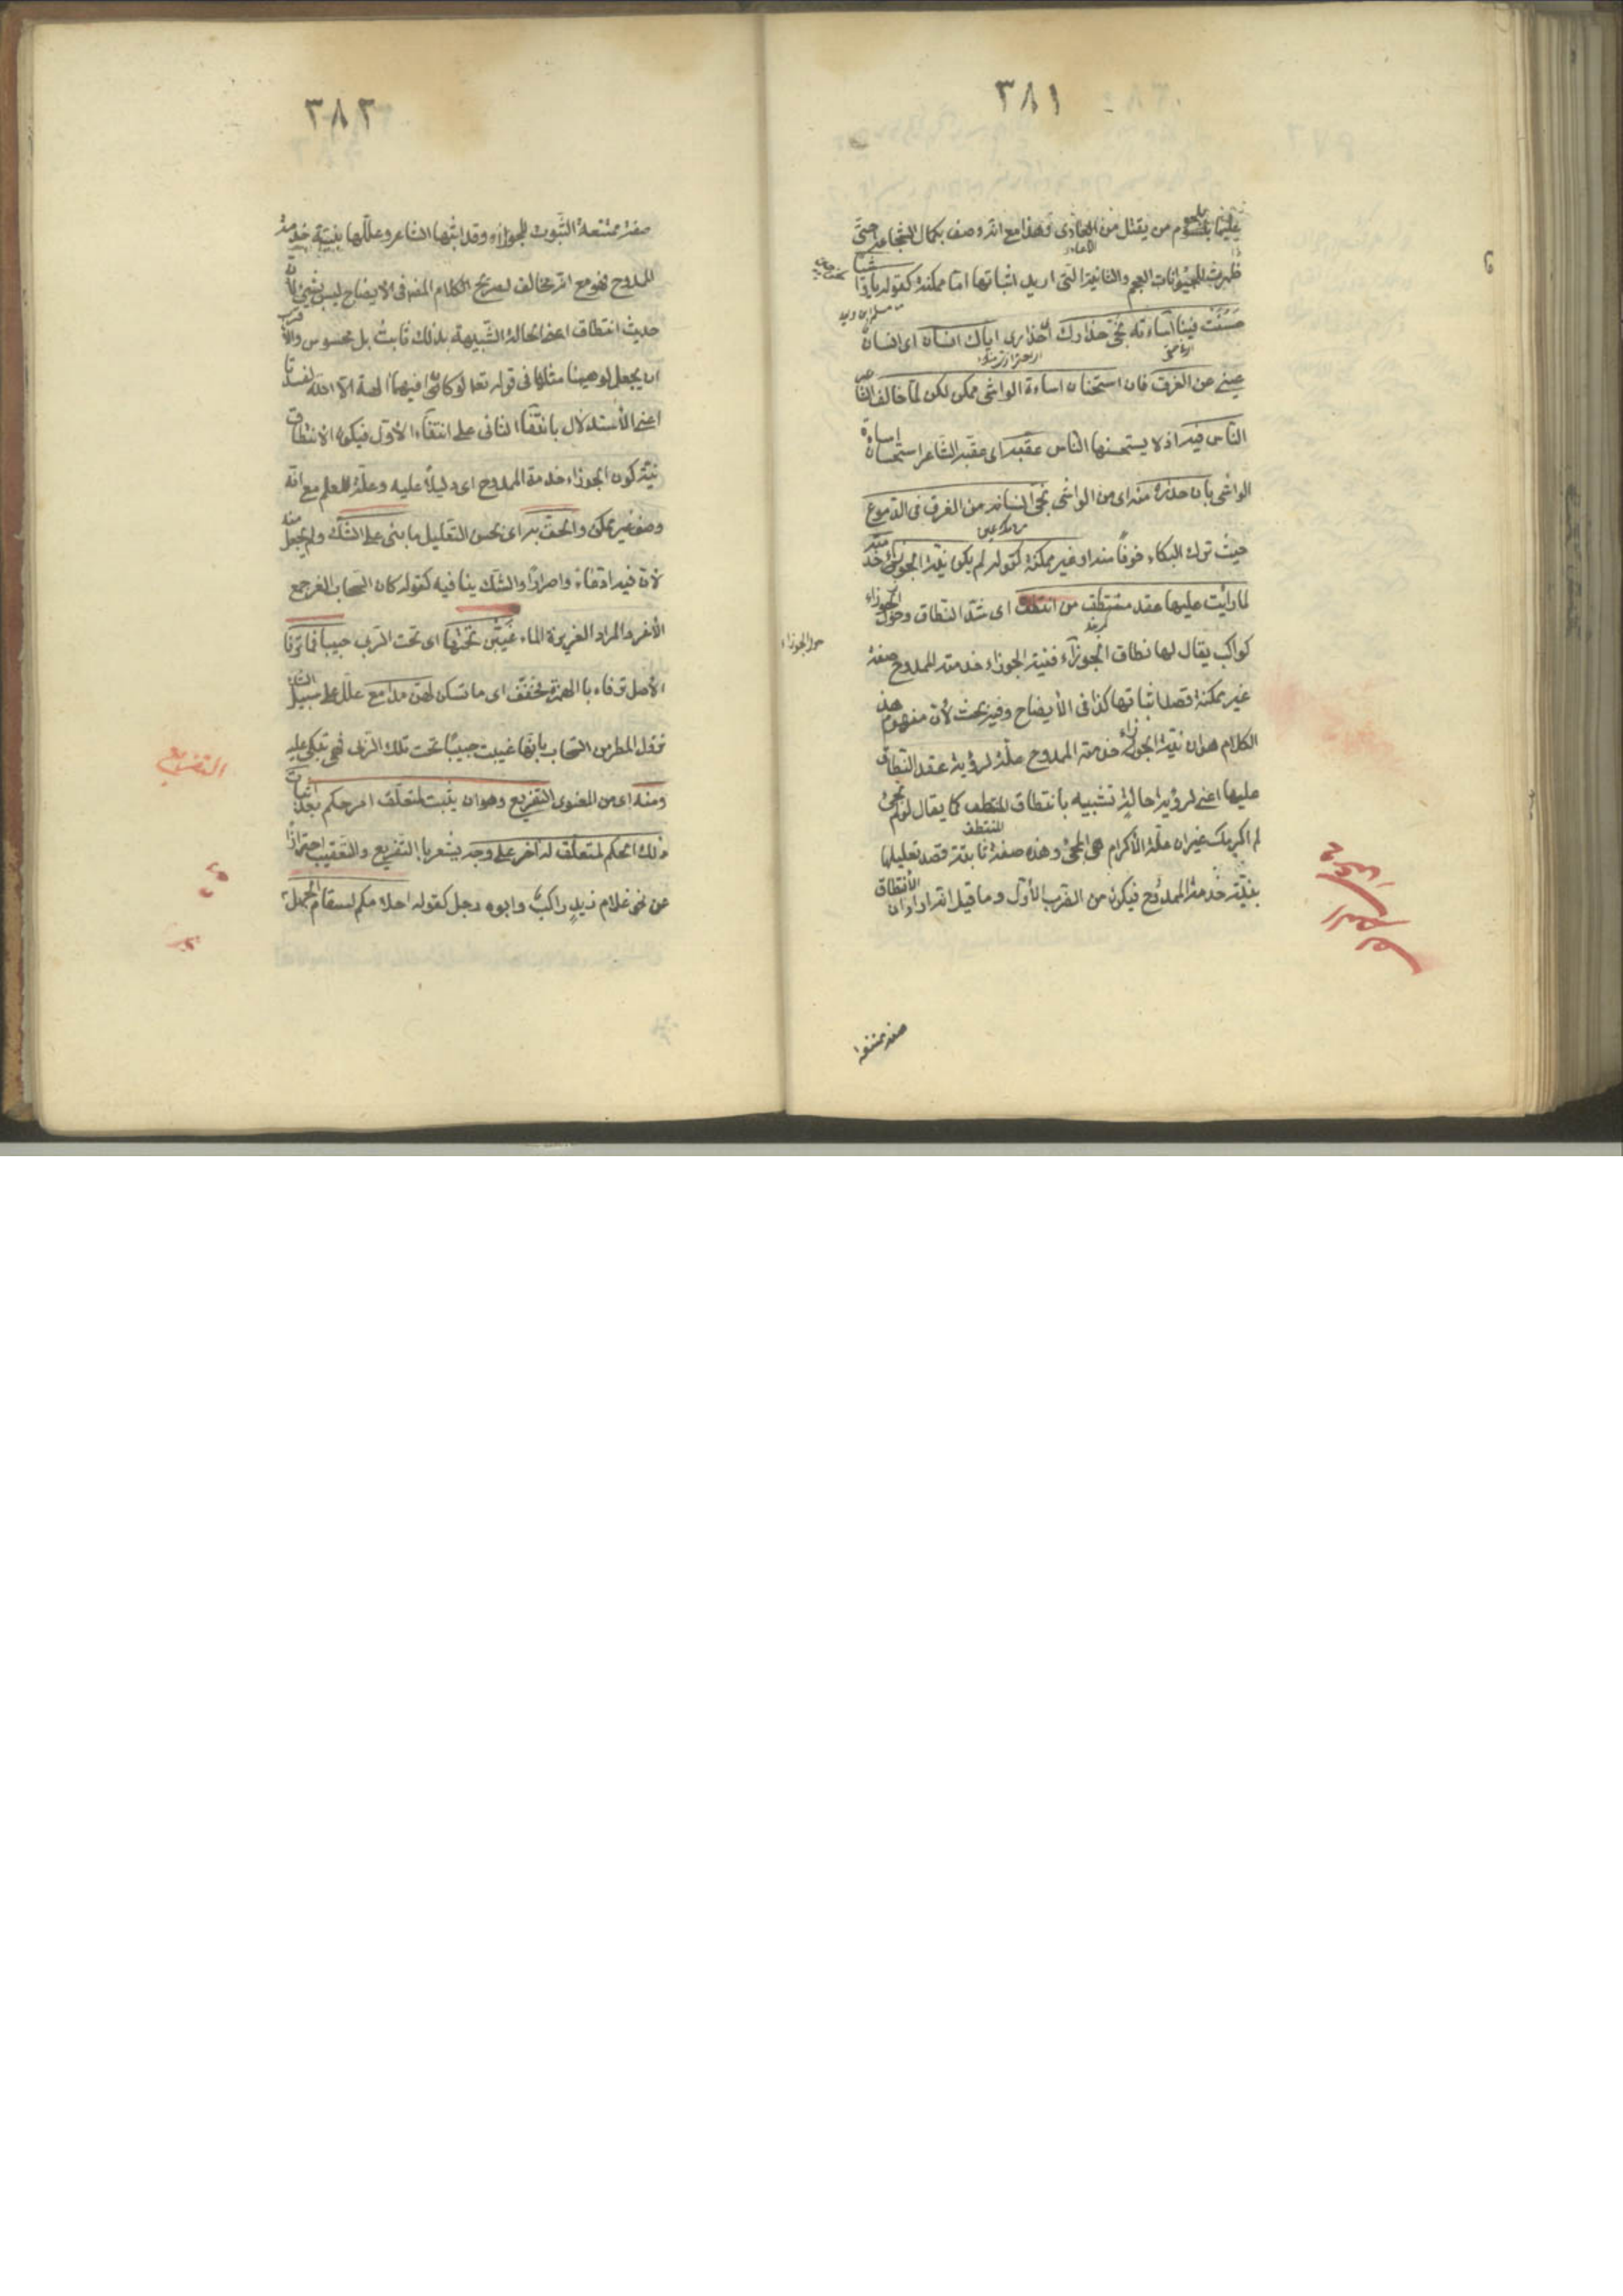 ٣٨١
عليها باللحوم من يقتل من الاعادى وهذا مع انه وصف بكمال الشجاعة حتى
ظهرت للحيوانات العجم والثانية التى اريد اثباتها اما ممكنة كقوله يا واشيا
حسنت فينا اساءته نجى حذارك اى حذارى اياك انسان اى انسان
عينى من الغرق فان استحسان اساءة الواشى ممكن لكن لما خالف الشاعر
الناس فيه اذ لا يستحسنها الناس عقبه اى عقبه الشاعر استحسان اساءة
الواشى بان حذاره منه اى من الواشى نجى انسانه من الغرق فى الدموع
حيث ترك البكاء خوفا منه او غير ممكنة كقوله لم يكن نية الجوزاء خدمته
لما رايت عليها عقد منتطق من انتطق اى شد النطاق وحول الجوزاء
كواكب يقال لها نطاق الجوزاء فنية الجوزاء خدمته للممدوح صفة
حول الجوزاء
غير ممكنة قصد اثباتها كذا فى الأيضاح وفيه بحث لأن مفهوم هذا
الكلام هو ان نية الجوزاء خدمة الممدوح علة لرؤية عقد النطاق
عليها اعنى لرؤية حالة تشبيه بانتطاق المنتطق كما يقال لو لم تجئ
لم اكرمك يعنى ان علة الأكرام هى المجئ وهذه صفة ثابتة قصد تعليلها
بنية خدمة الممدوح فيكون من الضرب الأول وما قيل انه اراد ان الأنتطاق
صفة ممتنعة
٣٨٢
صفة ممتنعة الثبوت للجوزاء وقد اثبتها الشاعر وعللها بنية خدمة
الممدوح فهو مع انه مخالف لصريح الكلام المص فى الايضاح ليس بشئ لأن
حديث انتطاق اعنى الحالة الشبيهة بذلك ثابت بل محسوس والأقرب
ان يجعل لو ههنا مثلها فى قوله تعالى لو كان فيهما آلهة الا الله لفسدتا
اعنى الأستدلال بانتفاء الثانى على انتفاء الأول فيكون الانتطاق
نية كون الجوزاء خدمة الممدوح اى دليلاً عليه وعلة للعلم مع انه
وصف غير ممكن والحق به اى بحسن التعليل ما بنى على الشك ولم يجعل منه
لأن فيه ادعاءً واصراراً والشك ينافيه كقوله كان السحاب الغر جمع
الأغر والمراد الغزيرة الماء غيبن تحتها اى تحت الربى حبيبا فما ترقا
الأصل ترقاء بالهمزة فخفف اى ما تسكن لهن مدامع علل على سبيل الشك
نزول المطر من السحاب بانها غيبت حبيبًا تحت تلك الربى فهى تبكى عليه
التفريع
ومنه اى من المعنوى التفريع وهو ان يثبت لمتعلق امر حكم بعد اثبات
ذلك الحكم لمتعلق له آخر على وجه يشعر بالتفريع والتعقيب احترازاً
عن نحو غلام زيدٍ راكبٌ وابوه رجل كقوله احلامكم لسقام الجهل